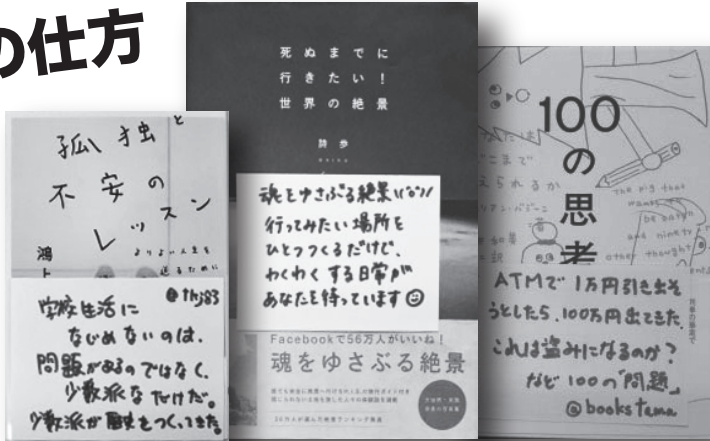 の仕方
孤独と
不安の
レッスン
鴻上
よりよい人生を
送るために
@thj83
学校生活に
なじめないのは、
問題があるのではなく、
少数派なだけだ。
少数派が歴史をつくってきた。
死ぬまでに
行きたい!
世界の絶景
詩歩
魂をゆさぶる絶景
行ってみたい場所を
ひとつつくるだけで、
わくわくする日常が
あなたを待っています
Facebookで56万人がいいね!
魂をゆさぶる絶景
100
の
思
考
the pig that
wants to
be eaten
and ninety
other thought
ATMで1万円引き出そ
うとしたら、100万円出てきた。
これは盗みになるのか?
など100の「問題」
@bookstama